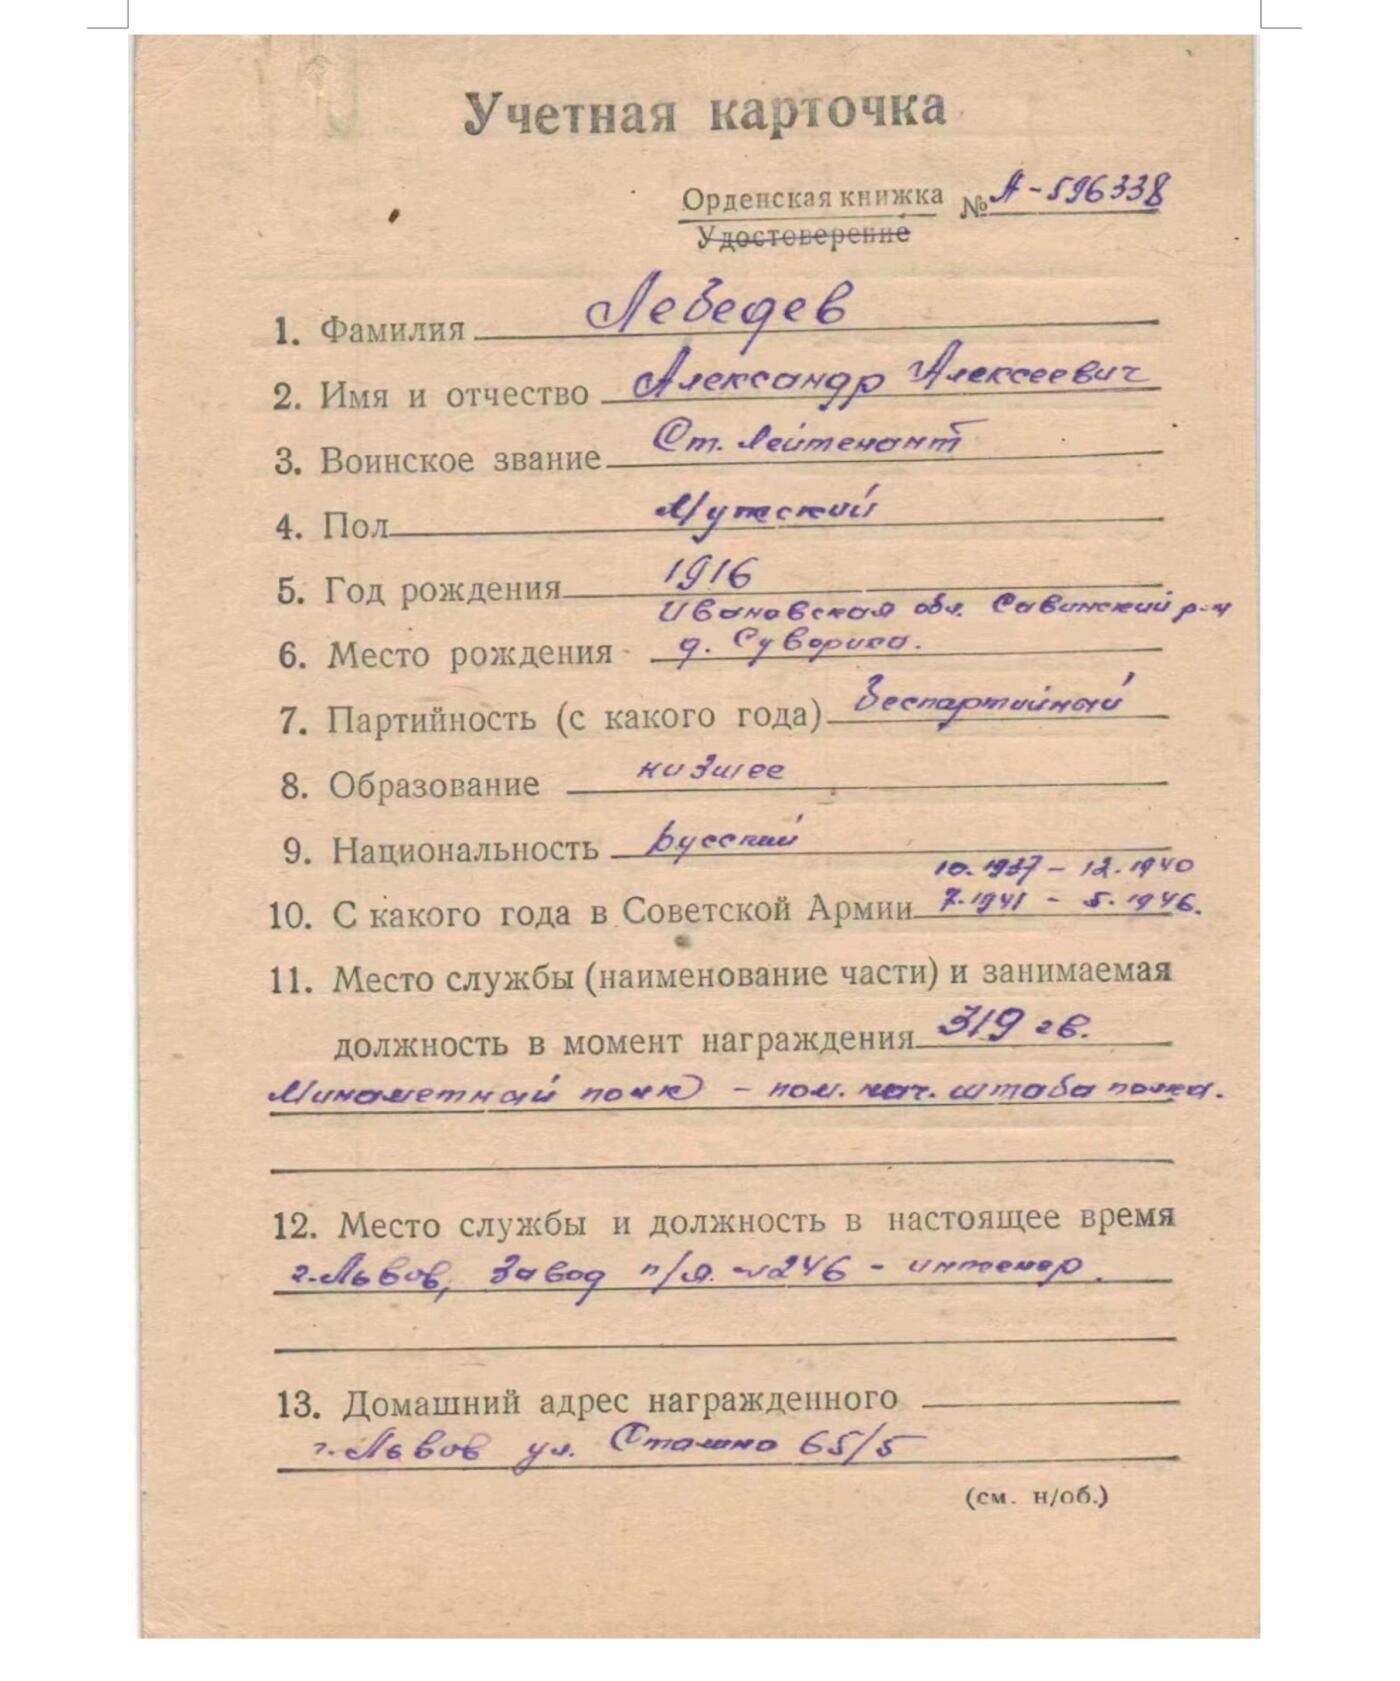 Учетная карточка
Орденская книжка № А-596338
Удостоверение
1. Фамилия Лебедев
2. Имя и отчество Александр Алексеевич
3. Воинское звание Ст. лейтенант
4. Пол Мужской
5. Год рождения 1916
Ивановская обл. Савинский р-н
6. Место рождения д. Сувориха.
7. Партийность (с какого года) Беспартийный
8. Образование низшее
9. Национальность русский
10.1937 - 12.1940
10. С какого года в Советской Армии 7.1941 - 5.1946.
11. Место службы (наименование части) и занимаемая
должность в момент награждения 319 гв.
Минометный полк - пом. нач. штаба полка.
12. Место службы и должность в настоящее время
г. Львов, Завод п/я. №246 - инженер.
13. Домашний адрес награжденного
г. Львов ул. 65/5
(см. н/об.)